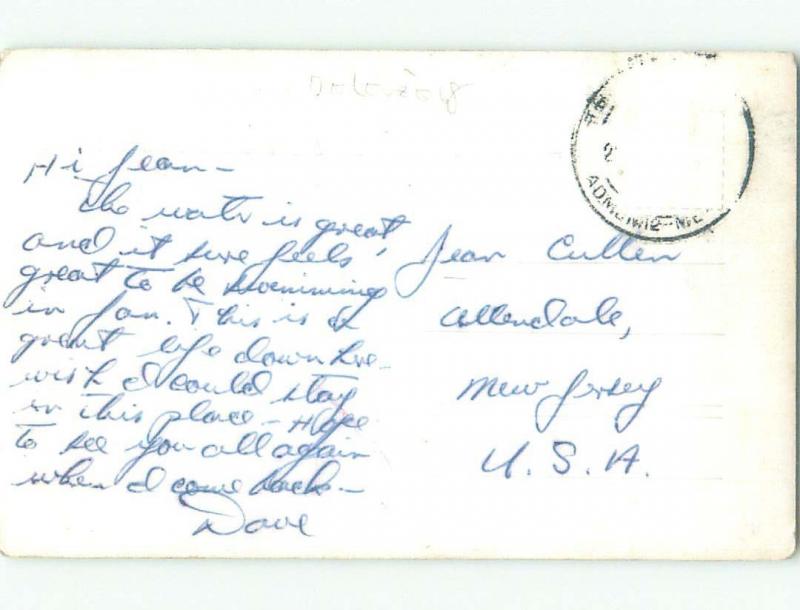 Hi Jean -
The water is great,
and it sure feels
great to be swimming
in Jan. This is a
great life down here -
wish I could stay
in this place - Hope
to see you all again
when I come back -
Dave
Jean Cullen
Allendale,
New Jersey
U. S. A.